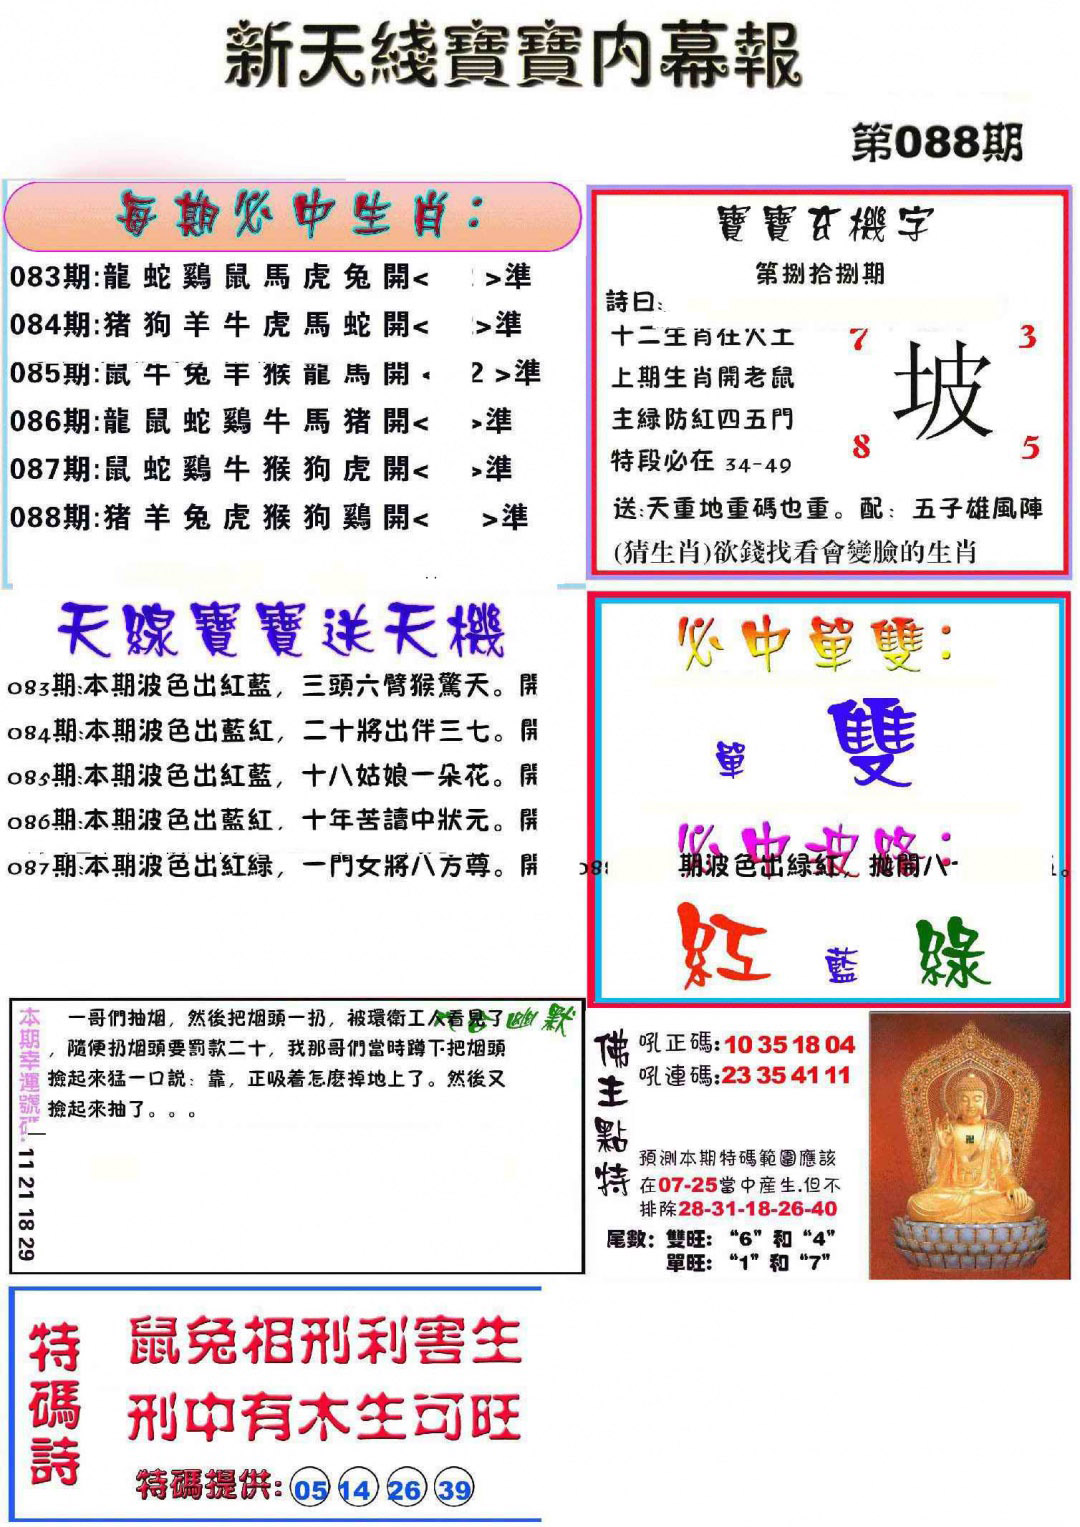 新天綫寶寶内幕報
第088期
每期必中生肖：
083期:龍蛇鷄鼠馬虎兔開< >準
084期:猪狗羊牛虎馬蛇開< >準
085期:鼠牛兔羊猴龍馬開 2 >準
086期:龍鼠蛇鷄牛馬猪開< >準
087期:鼠蛇鷄牛猴狗虎開< >準
088期:猪羊兔虎猴狗鷄開< >準
寶寶玄機字
第捌拾捌期
詩曰:
十二生肖在火土
上期生肖開老鼠
主緑防紅四五門
特段必在 34-49
7 3
坡
8 5
送:天重地重碼也重。配：五子雄風陣
(猜生肖)欲錢找看會變臉的生肖
天線寶寶送天機
083期:本期波色出紅藍，三頭六臂猴驚天。開
084期:本期波色出藍紅，二十將出伴三七。開
085期:本期波色出紅藍，十八姑娘一朵花。開
086期:本期波色出藍紅，十年苦讀中狀元。開
087期:本期波色出紅緑，一門女將八方尊。開
必中單雙：
單 雙
必中波路：
期波色出緑紅，拋開八
紅 藍 綠
本期幸運號碼:
11 21 18 29
幽默
一哥們抽烟，然後把烟頭一扔，被環衛工人看見了
，隨便扔烟頭要罰款二十，我那哥們當時蹲下把烟頭
撿起來猛一口説：靠，正吸着怎麽掉地上了。然後又
撿起來抽了。。。
佛主點特
吼正碼:10 35 18 04
吼連碼:23 35 41 11
預測本期特碼範圍應該
在07-25當中産生.但不
排除28-31-18-26-40
尾數：雙旺：“6”和“4”
單旺：“1”和“7”
特碼詩
鼠兔相刑利害生
刑中有木生可旺
特碼提供: 05 14 26 39